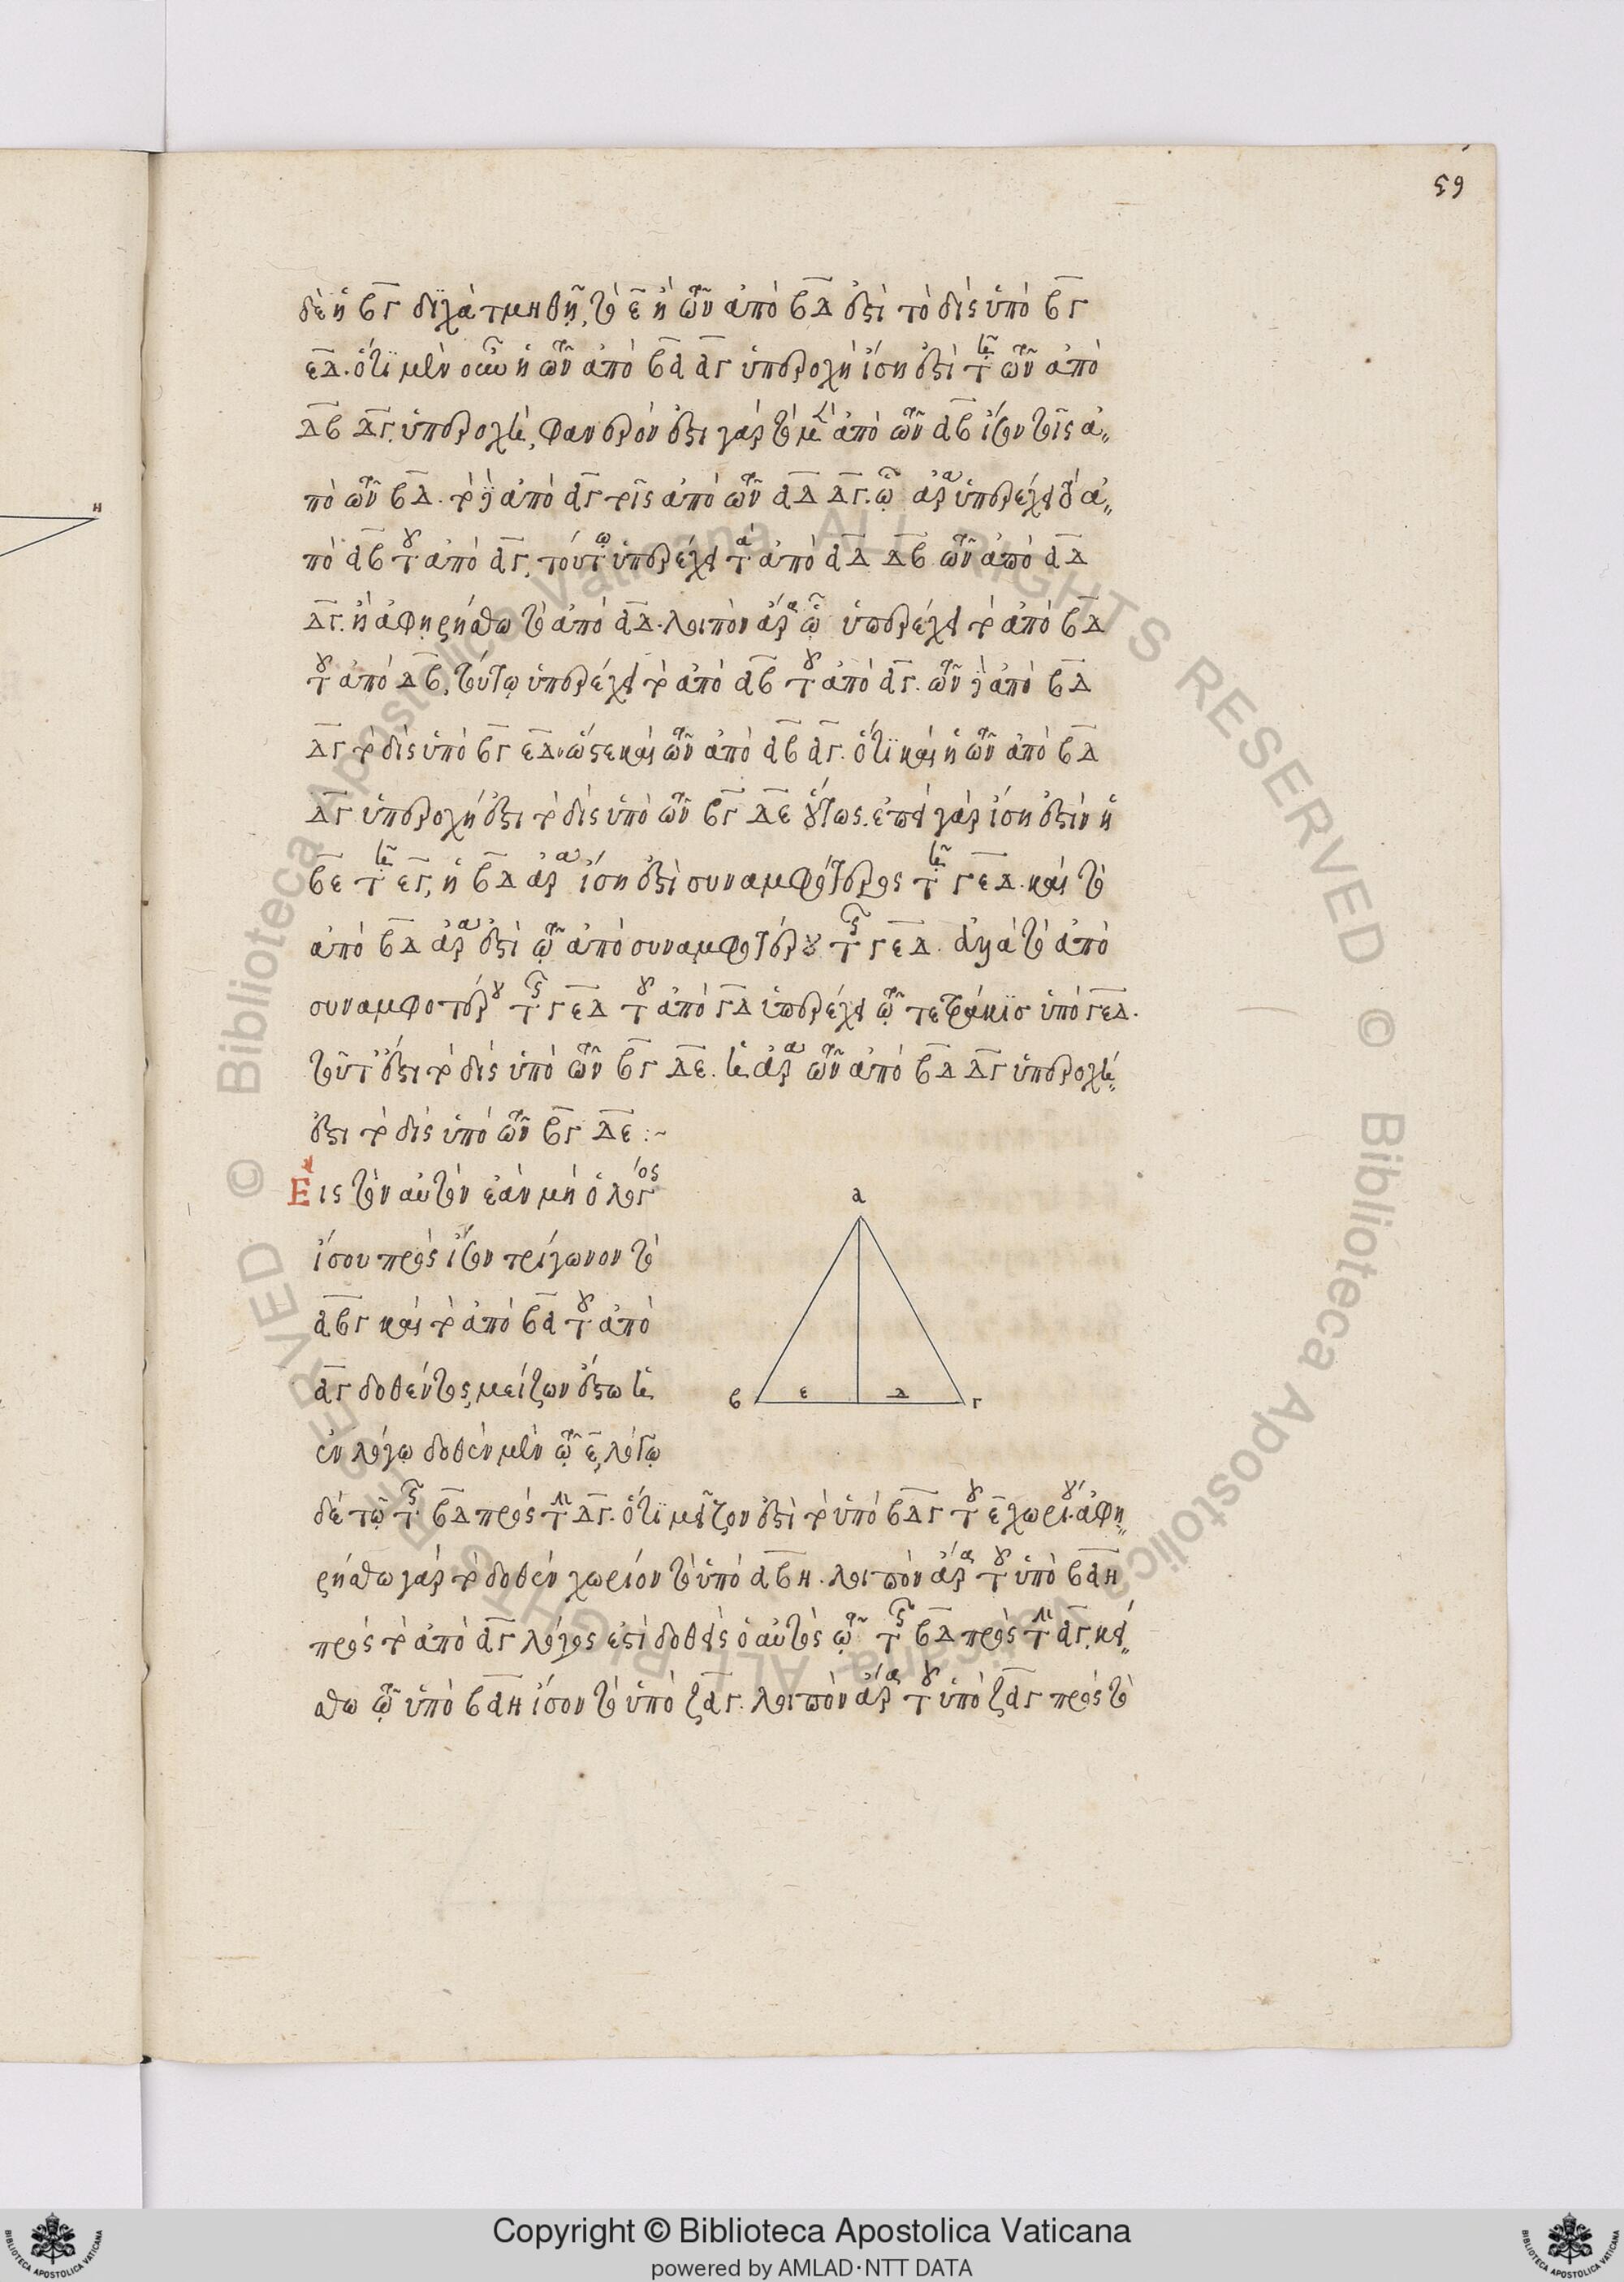 59
δὲ ἡ βγ δίχα τμηθῇ, τὸ ε ἡ τῶν ἀπὸ βδ ἐστὶ τὸ δὶς ὑπὸ βγ
εδ. ὅτι μὲν οὖν ἡ τῶν ἀπὸ βα αγ ὑπεροχὴ ἴση ἐστὶ τῇ τῶν ἀπὸ
δβ δγ ὑπεροχῇ, φανερόν ἐστι γὰρ τὸ μὲν ἀπὸ τῶν αβ ἴσον τοῖς ἀ
πὸ τῶν βδ. τὸ δὲ ἀπὸ αγ τοῖς ἀπὸ τῶν αδ δγ. ᾧ ἄρα ὑπερέχει τὸ ἀ
πὸ αβ τοῦ ἀπὸ αγ, τούτω ὑπερέχει τὰ ἀπὸ αδ δβ τῶν ἀπὸ αδ
δγ. ἡ ἀφηρήσθω τὸ ἀπὸ αδ. λοιπὸν ἄρα ᾧ ὑπερέχει τὸ ἀπὸ βδ
τοῦ ἀπὸ δβ, τούτῳ ὑπερέχει τὸ ἀπὸ αβ τοῦ ἀπὸ αγ. τῶν δὲ ἀπὸ βδ
δγ τὸ δὶς ὑπὸ βγ εδ. ὥστε καὶ τῶν ἀπὸ αβ αγ. ὅτι καὶ ἡ τῶν ἀπὸ βδ
δγ ὑπεροχή ἐστι τὸ δὶς ὑπὸ τῶν βγ δε οὕτως. ἐπεὶ γὰρ ἴση ἐστὶν ἡ
βε τῇ εγ, ἡ βδ ἄρα ἴση ἐστὶ συναμφότερος τῇ γεδ. καὶ τὸ
ἀπὸ βδ ἄρα ἐστὶ τῷ ἀπὸ συναμφοτέρου τῆς γεδ. ἀλλὰ τὸ ἀπὸ
συναμφοτέρου τῆς γεδ τοῦ ἀπὸ γδ ὑπερέχει τῷ τετράκις ὑπὸ γεδ.
τοῦτ ἐστι τὸ δὶς ὑπὸ τῶν βγ δε. ἡ ἄρα τῶν ἀπὸ βδ δγ ὑπεροχή
ἐστι τὸ δὶς ὑπὸ τῶν βγ δε :~
Εἰς τὸν αὐτὸν ἐὰν μὴ ὁ λόγος
ἴσου πρὸς ἴσον τρίγωνον τὸ
αβγ καὶ τὸ ἀπὸ βα τοῦ ἀπὸ
αγ δοθέντος, μείζων ἔστω ἢ
ἐν λόγω δοθὲν μὲν τῷ ε, λόγῳ
δὲ τῷ τῆς βδ πρὸς τὴν δγ. ὅτι μεῖζον ἐστὶ τὸ ὑπὸ βδγ τοῦ ε χωρίου. ἀφῃ
ρήσθω γὰρ τὸ δοθὲν χωρίον τὸ ὑπὸ αβη. λοιπὸν ἄρα τοῦ ὑπὸ βαη
πρὸς τὸ ἀπὸ αγ λόγος ἐστὶ δοθεὶς ὁ αὐτὸς τῷ τῆς βδ πρὸς τὴν δγ. κεί
σθω τῷ ὑπὸ βαη ἴσον τὸ ὑπὸ ζαγ. λοιπὸν ἄρα τοῦ ὑπὸ ζαγ πρὸς τὸ
α
β ε δ γ
η
Copyright © Biblioteca Apostolica Vaticana
powered by AMLAD·NTT DATA